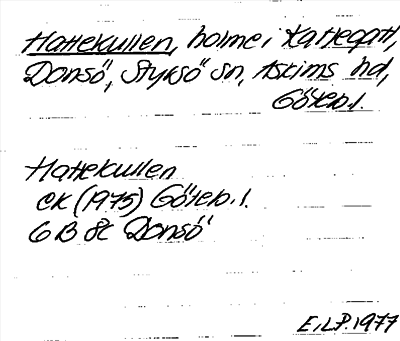 Hattekullen, holme i Kattegatt,
Donsö, Styrsö sn, Askims hd,
Göteb. l.
Hattekullen
EK (1975) Göteb. l.
6 B 8c Donsö
E.L.P. 1977